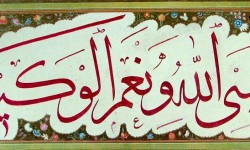 سبي الله ونعم الوكيـ